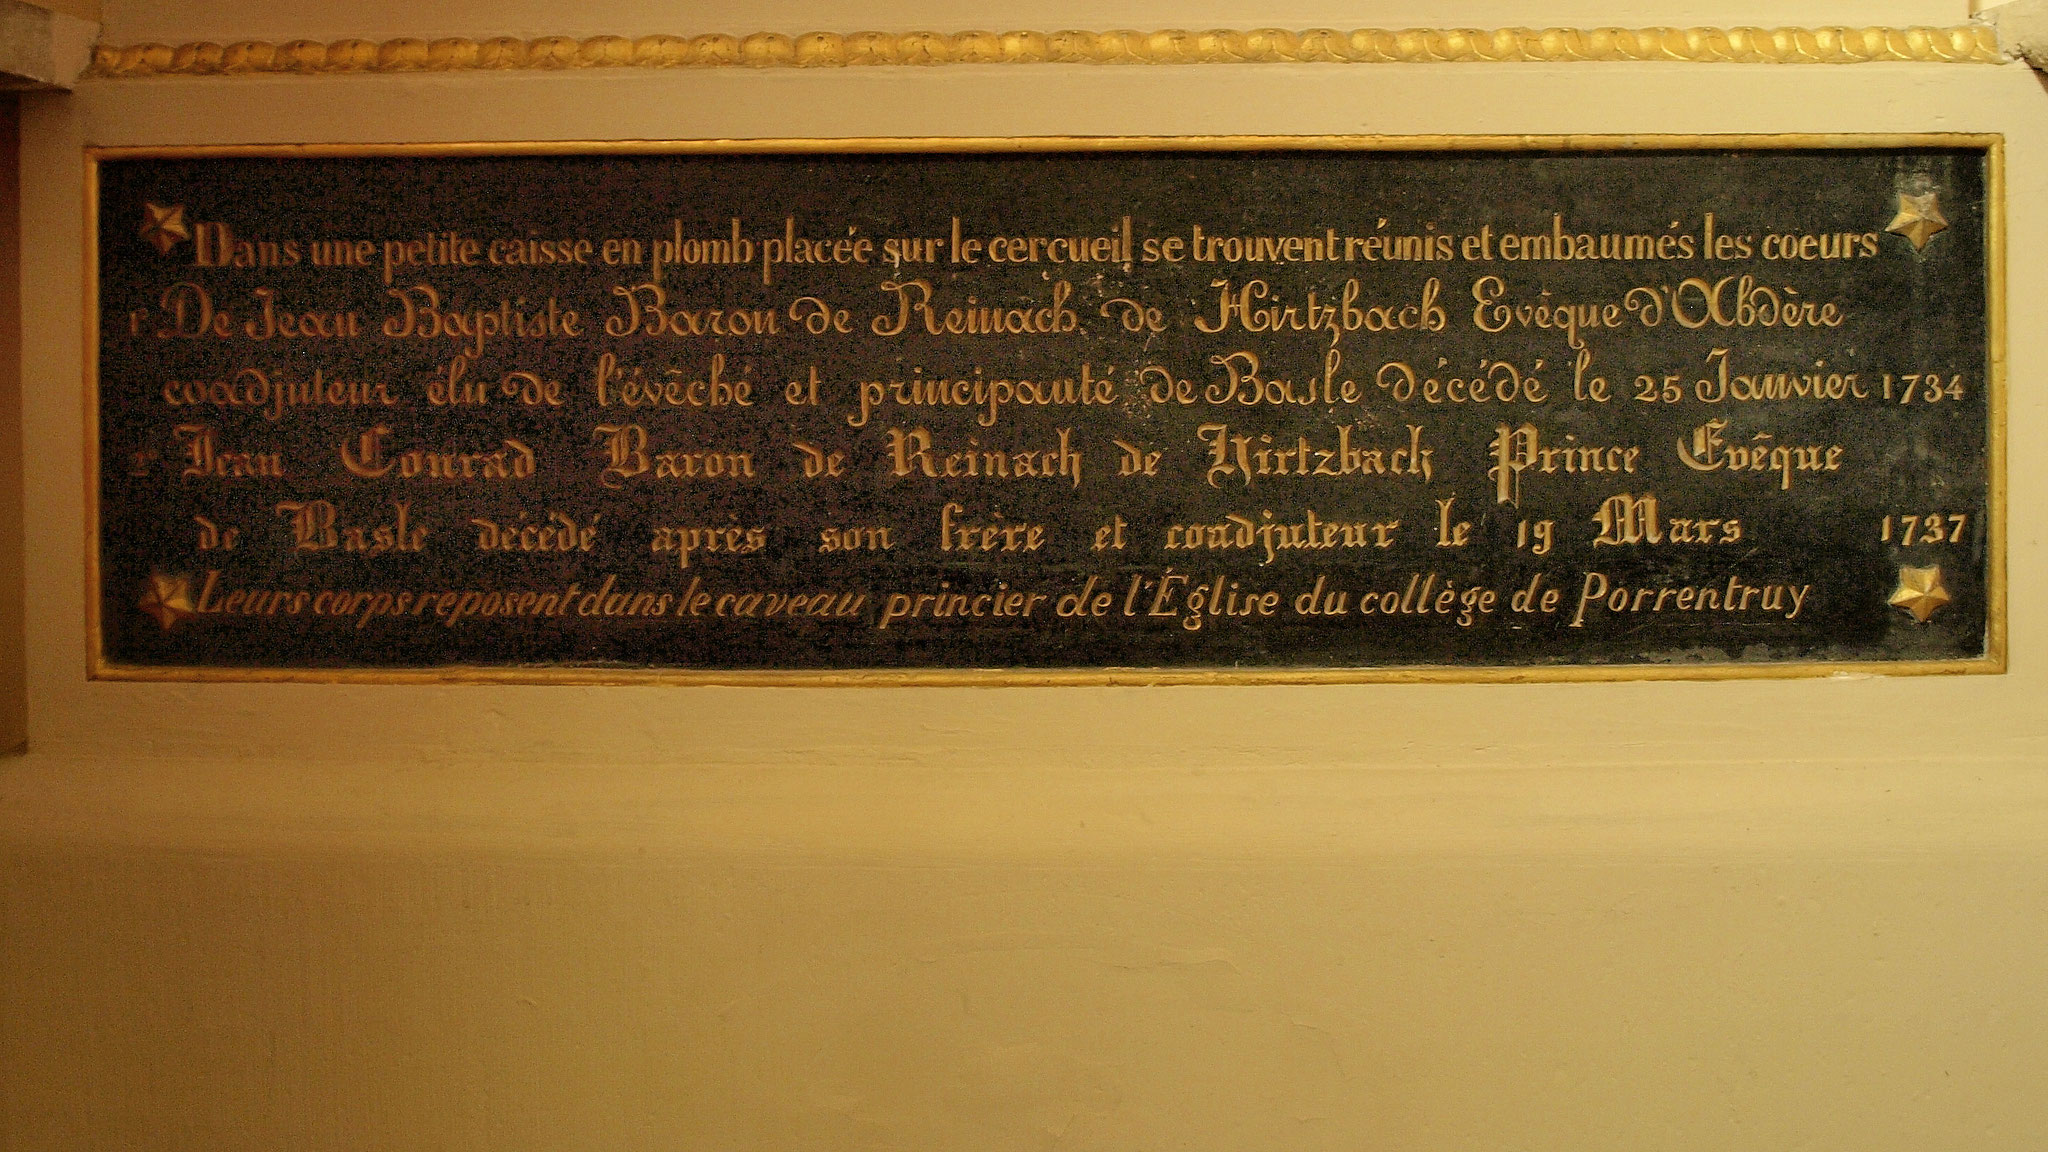 Dans une petite caisse en plomb placée sur le cercueil se trouvent réunis et embaumés les coeurs
De Jean Baptiste Baron de Reinach de Hirtzbach Evêque d'Abdère
coadjuteur élu de l'évêché et principauté de Basle décédé le 25 Janvier 1734
Jean Conrad Baron de Reinach de Hirtzbach Prince Evêque
de Basle décédé après son frère et coadjuteur le 19 Mars 1737
Leurs corps reposent dans le caveau princier de l'Église du collège de Porrentruy